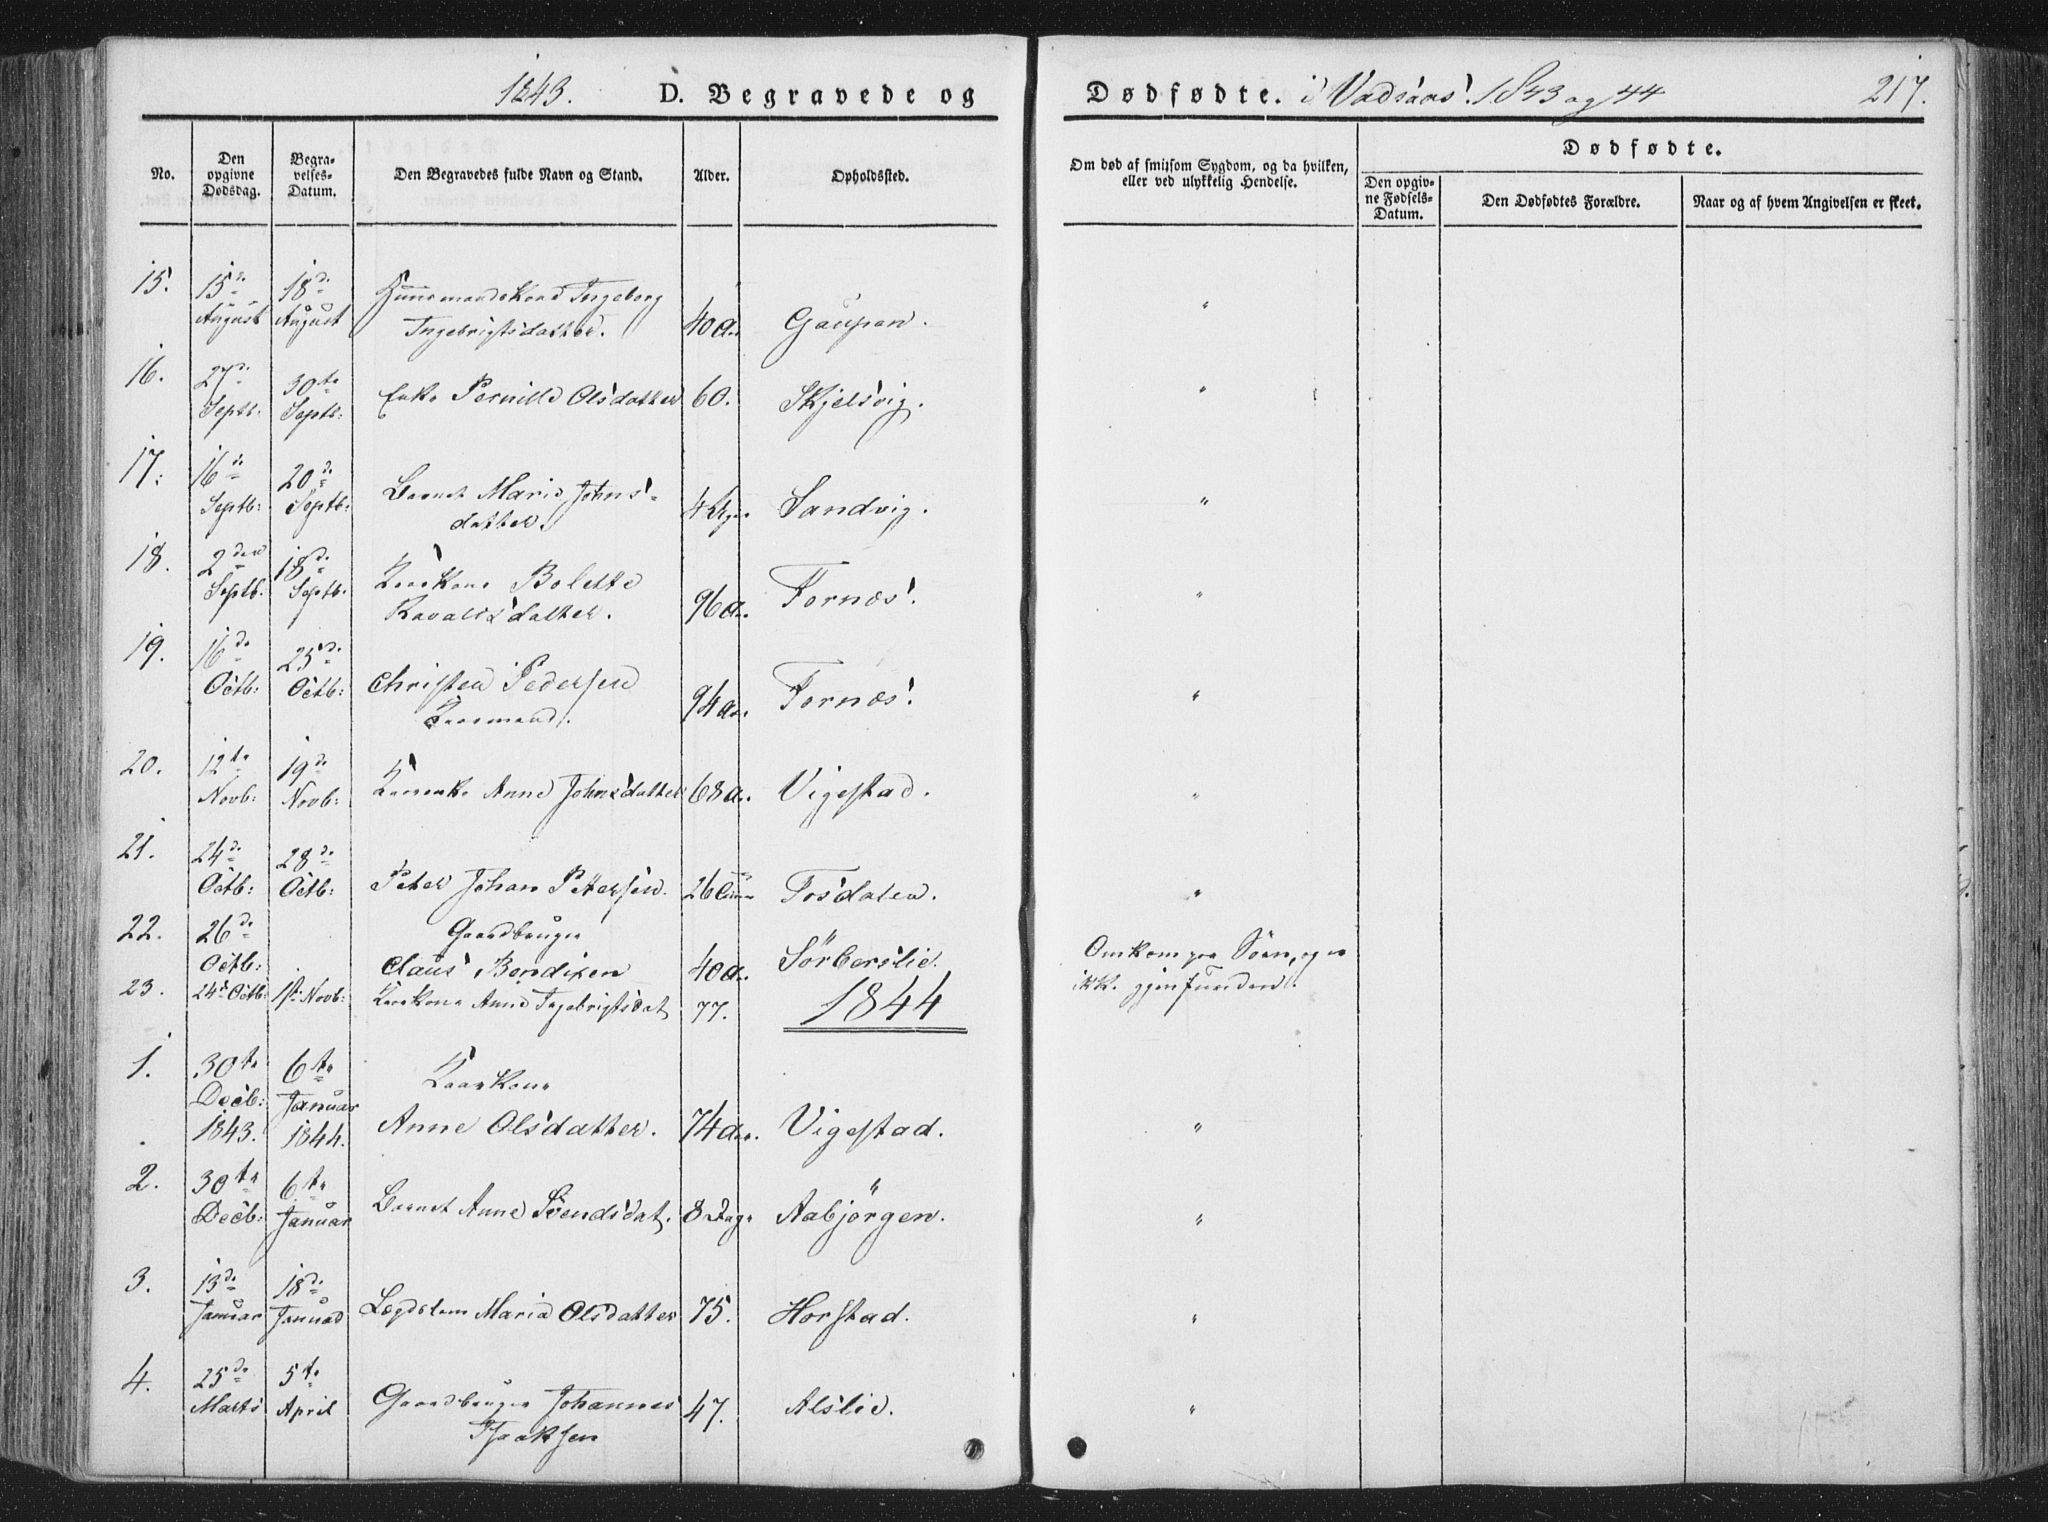 1843.
D. Begravede og
Dødfødte. i Vadsaas' 1843 og 44
217.
No.
Den opgivne Dødsdag.
Begravelses-Datum.
Den Begravedes fulde Navn og Stand.
Alder.
Opholdssted.
Om død af smitsom Sygdom, og da hvilken,
eller ved ulykkelig Hendelse.
Dødfødte.
Den opgivne Fødsels-Datum.
Den Dødfødtes Forældre.
Naar og af hvem Angivelsen er skeet.
15. 15de August 18de August Huusmandskone Ingeborg
Ingebrigtsdatter. 40 Gaupen. "
16. 27de Septb: 30te Septb: Enke Pernille Olsdatter 60. Skjelsvig. "
17. 16de Septb: 20de Septb: Barnet Marie Johns-
datter. 4 Sandvig. "
18. 2den Septb: 18de Septb: Kaarkone Bolette
96 Fornæs. "
19. 16de Octb: 23de Octb: Christen Pedersen
Kaarmand. 94 Fornæs. "
20. 12te Novb: 19de Novb: Kaarenke Anne Johnsdatter 68 Vigestad. "
21. 24de Octb: 28de Octb: Peter Johan Pettersen. 26 Tosdalen. "
22. 26de Octb: Gaardbruger
Claus Bendixen 40 Sörberslie. Omkom paa Söen, og er
ikke gjenfunden.
23. 24de Octb: 1ste Novb: Kaarkone Anne Ingebrigtsdat 77.
1844
1. 30te Decb: 1843. 6te Januar 1844. Kaarkone
Anne Olsdatter. 74 Vigestad. "
2. 30te Decb: 6te Januar Barnet Anne Svendsdat. 8 Dage Aabjörgen. "
3. 13de Januar 18de Januar Lægdslem Maria Olsdatter 75. Horstad. "
4. 25de Marts 5te April Gaardbruger Johannes
Isaksen 47. Alslie. "